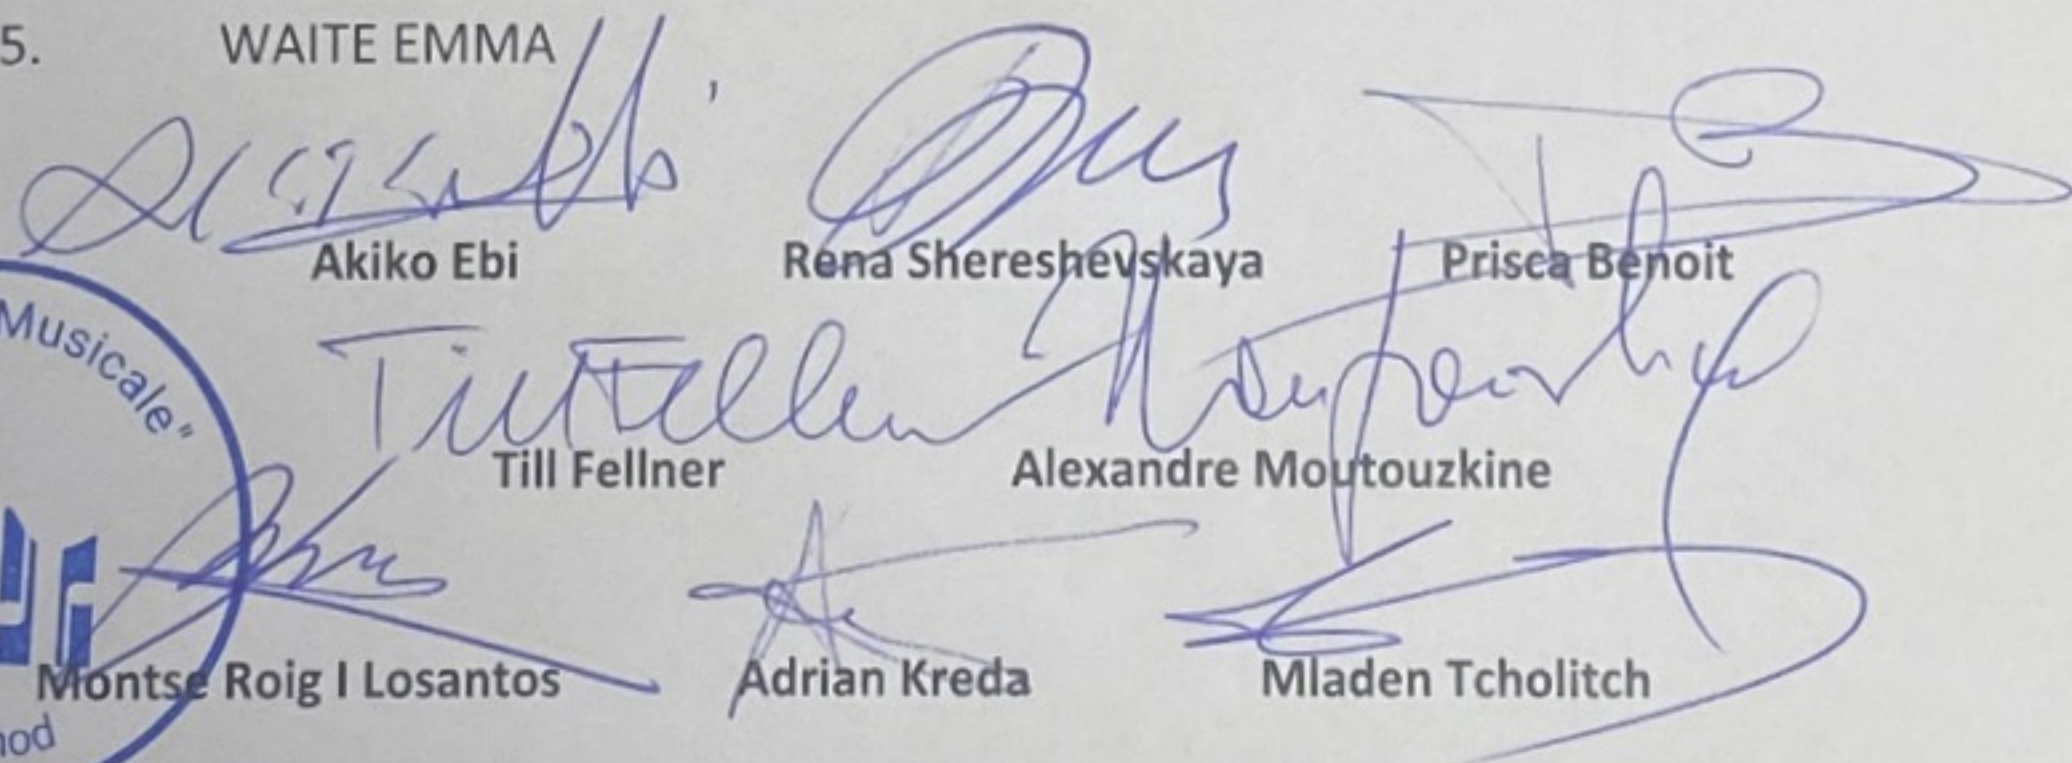 5. WAITE EMMA
Akiko Ebi Rena Shereshevskaya Prisca Benoit
Musicale"
Till Fellner
Till Fellner Alexandre Moutouzkine
Montse Roig I Losantos Adrian Kreda Mladen Tcholitch